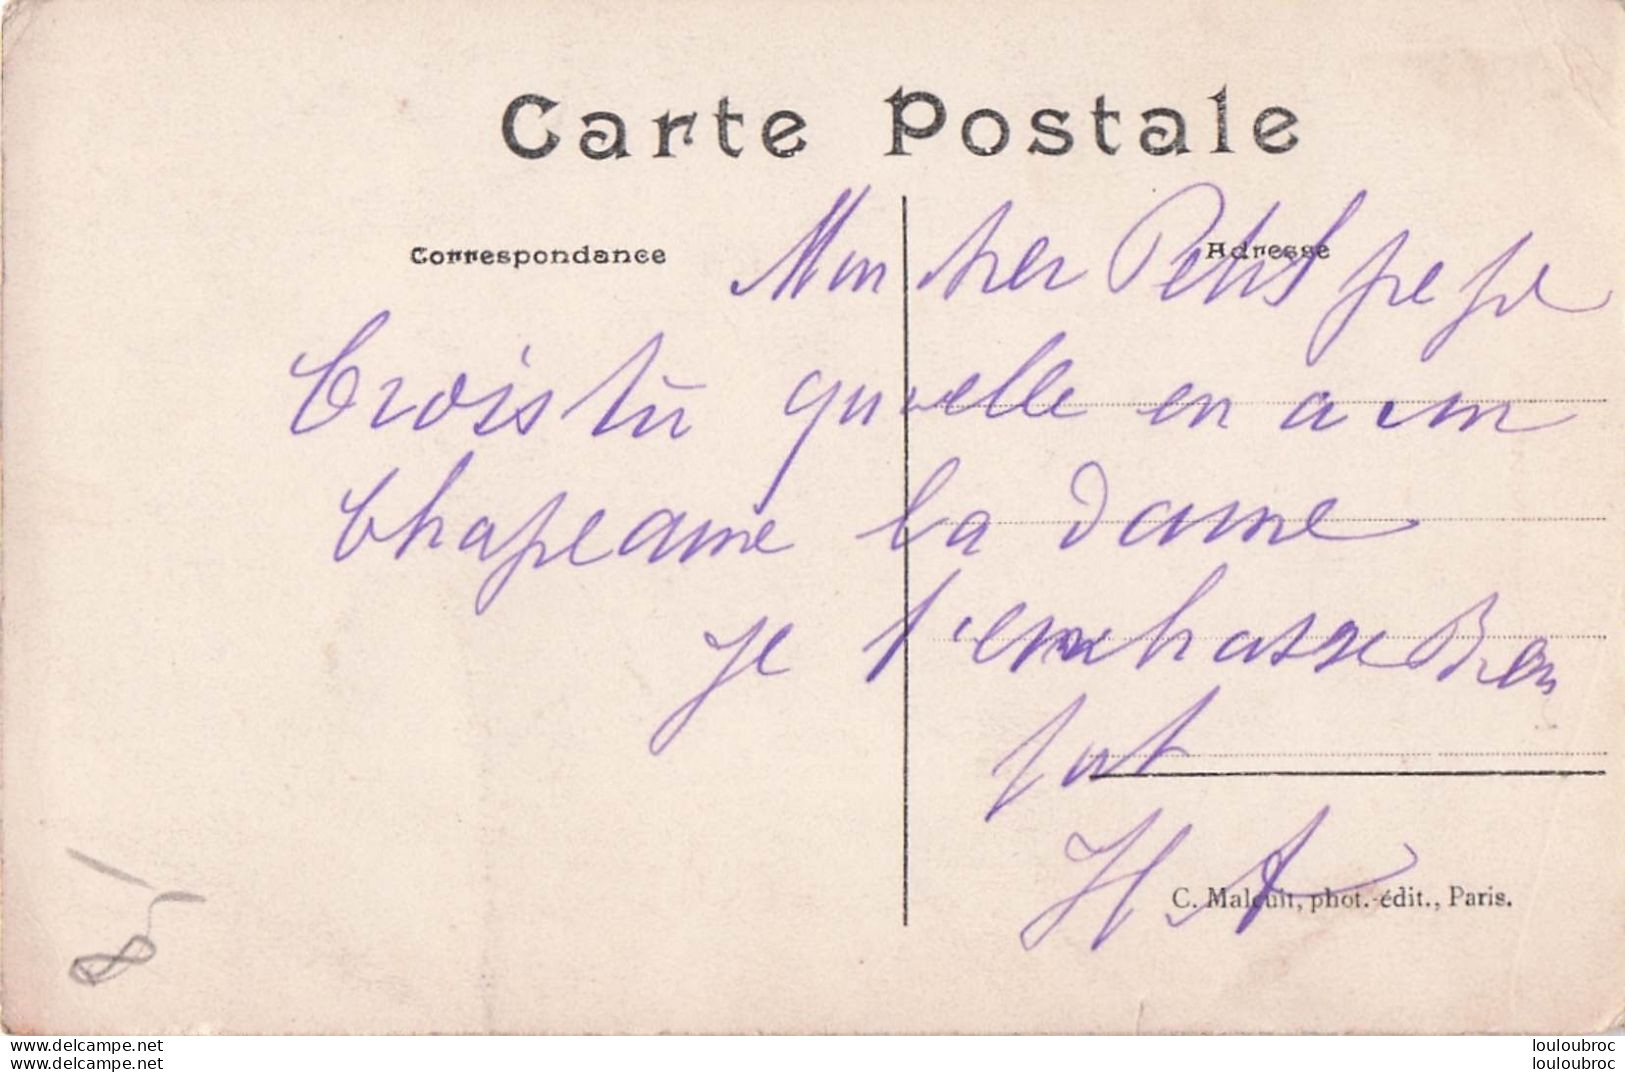 Carte Postale
Correspondance
Adresse
Mon cher Petit pepe
Crois tu qu'elle en a un
Chapeaue la dame
Je t'embrasse Bien
fort
H A
C. Malcuit, phot.-édit., Paris.
8
www.delcampe.net louloubroc
www.delcampe.net louloubroc